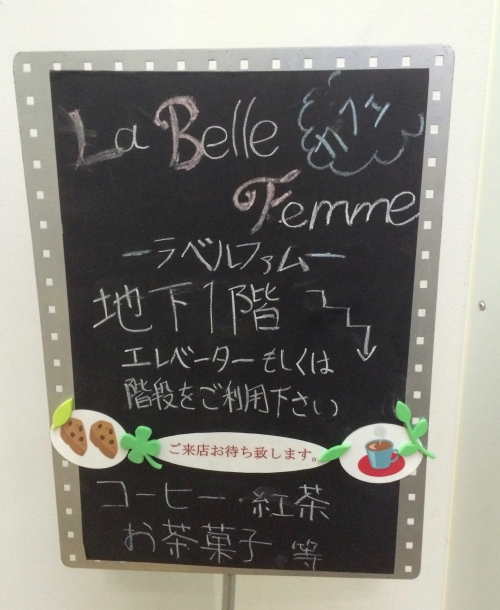 La Belle
カフェ
Femme
ーラベルファムー
地下1階
エレベーターもしくは
階段をご利用下さい
ご来店お待ち致します。
コーヒー 紅茶
お茶菓子 等